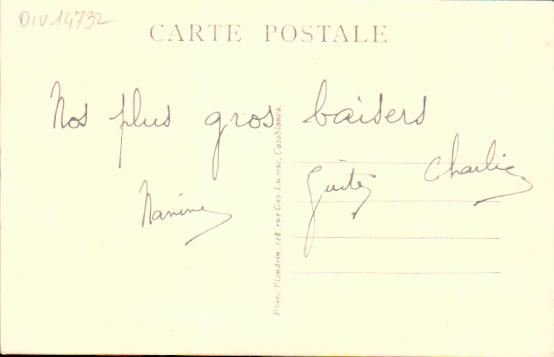 DIV14732
CARTE POSTALE
Nos plus gros baisers
Nanine Guite Charlie
Photo Flandrin, 128, rue Gay Lussac, Casablanca.